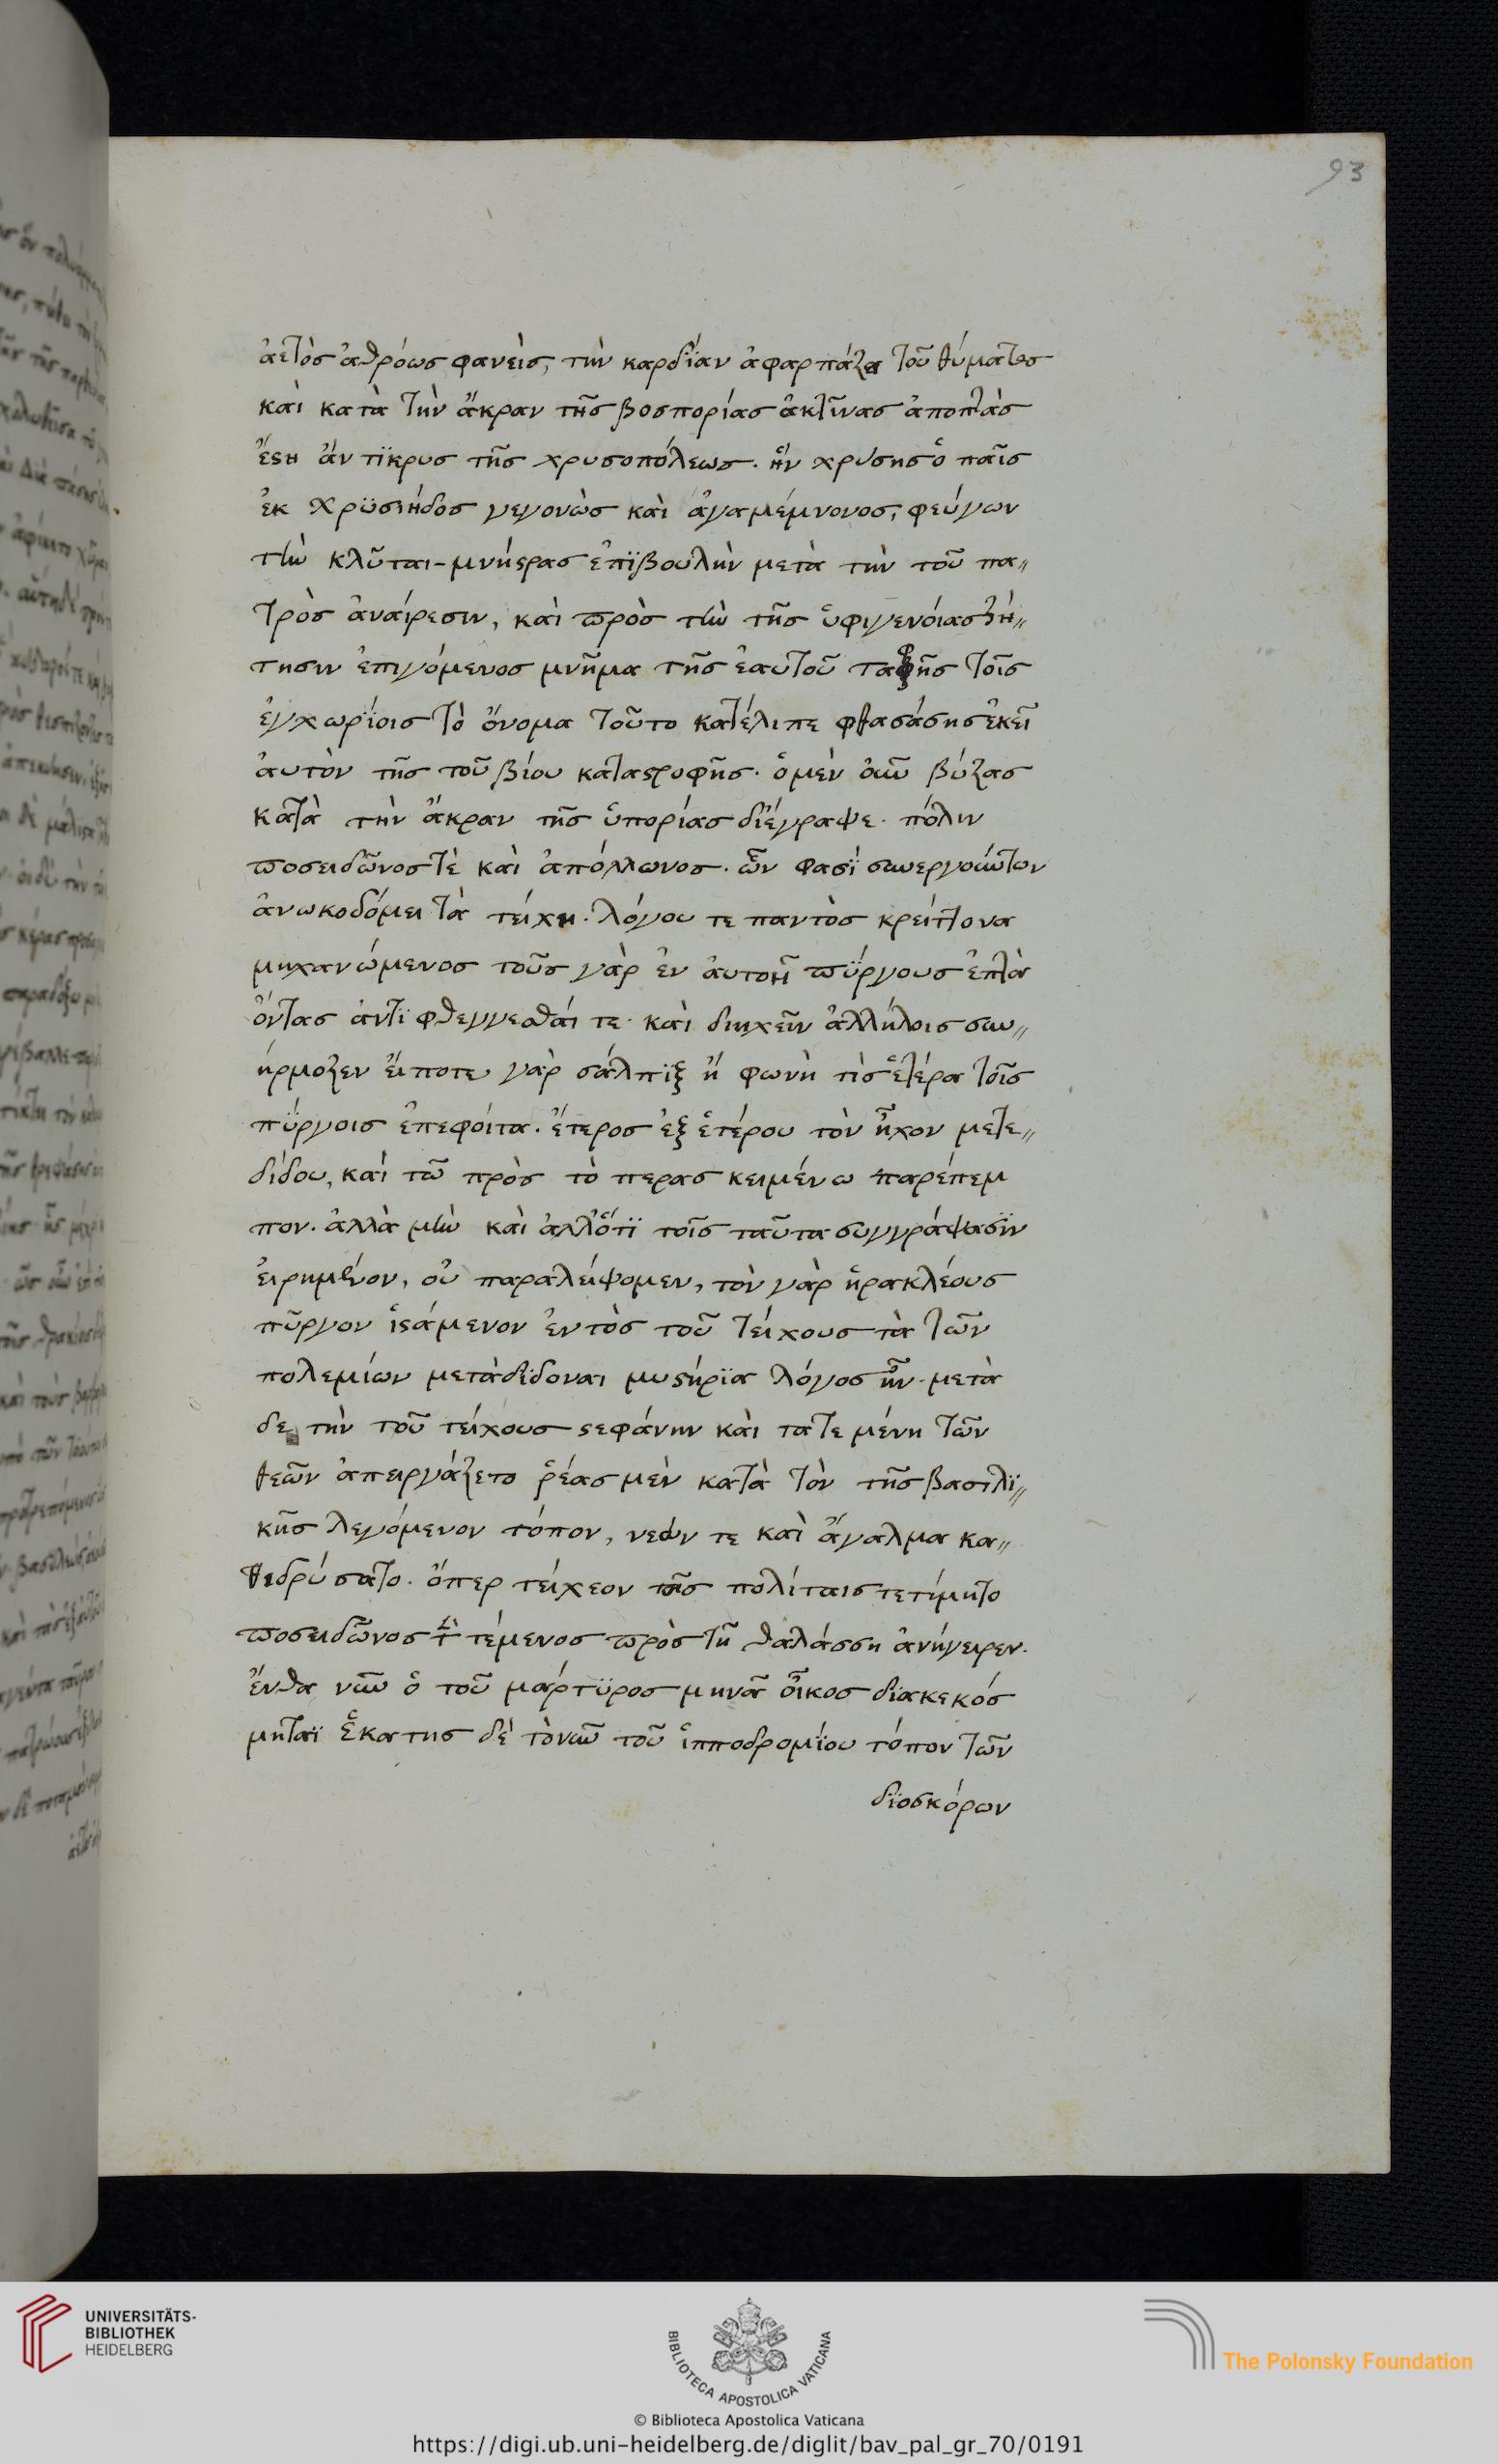 93
ἀετὸς ἀθρόως φανεὶς, τὴν καρδΐαν ἀφαρπάζει τοῦ θύματος
καὶ κατὰ τὴν ἄκραν τῆς βοσπορίας ἀκτῖνας ἀποπτὰς
ἔστη ἄντϊκρυς τῆς χρυσοπόλεως. ἣν χρύσης ὁ παῖς
ἐκ χρϋσηΐδος γεγονὼς καὶ ἀγαμέμνονος, φεύγων
τὴν κλῦται-μνήστρας ἐπϊβουλὴν μετὰ τὴν τοῦ πα〃
τρὸς ἀναίρεσιν, καὶ πρὸς τὴν τῆς ὑφιγενείας ζή〃
τησιν ἐπιγόμενος μνῆμα τῆς ἑαυτοῦ ταφῆς τοῖς
ἐγχωρΐοις τὸ ὄνομα τοῦτο κατέλιπε φθασάσης ἐκεῖ
ἀυτὸν τῆς τοῦ βίου καταστροφῆς. ὁ μὲν οὖν βύζας
κατὰ τὴν ἄκραν τῆς ὑπορίας δϊέγραψε. πόλιν
ποσειδῶνος τὲ καὶ ἀπόλλωνος. ὧν φασΐ συνεργούντων
ἀνωκοδόμει τὰ τείχη. λόγου τε παντὸς κρείττονα
μηχανώμενος τοῦς γὰρ ἐν ἀυτοῆ πΰργους ἑπτὰ
ὄντας ἀντϊφθεγγεσθάι τε. καὶ διηχεῖν ἀλλήλοις συν〃
ήρμοζεν ἔιποτε γὰρ σάλπϊξ ἢ φωνὴ τὶς ἑτέρα τοῖς
πΰργοις ἐπεφοίτα. ἕτερος ἐξ ἑτέρου τὸν ἦχον μετε〃
δίδου, καὶ τῶ πρὸς τὸ περας κειμένω παρέπεμ
πον. ἀλλὰ μὴν καὶ ἀλλ' ὅτϊ τοῖς ταῦτα συγγράψασϊν
ἐιρημένον, οὐ παραλείψομεν, τὸν γὰρ ἡρακλέους
πῦργον ἱστάμενον ἐντὸς τοῦ τείχους τὰ τῶν
πολεμίων μετὰδϊδοναι μυστήρϊα λόγος ἦν. μετὰ
δε τὴν τοῦ τείχους στεφάνην καὶ τα τε μένη τῶν
θεῶν ἀπειργάζετο ῥέας μὲν κατὰ τὸν τῆς βασιλϊ〃
κῆς λεγόμενον τόπον, νεών τε καὶ ἄγαλμα κα〃
θιδρύσατο. ὅπερ τείχεον τοῖς πολίταις τετίμητο
ποσειδῶνος τὲ τέμενος πρὸς τῆ θαλάσση ἀνήγειρεν.
ἔνθα νῦν ὁ τοῦ μάρτϋρος μηνᾶ οἶκος δϊακεκός
μηταϊ ἑκατης δὲ τὸν νῦν τοῦ ἱπποδρομΐου τόπον τῶν
δϊοσκόρων
UNIVERSITÄTS-
BIBLIOTHEK
HEIDELBERG
BIBLIOTECA APOSTOLICA VATICANA
The Polonsky Foundation
© Biblioteca Apostolica Vaticana
https://digi.ub.uni-heidelberg.de/diglit/bav_pal_gr_70/0191